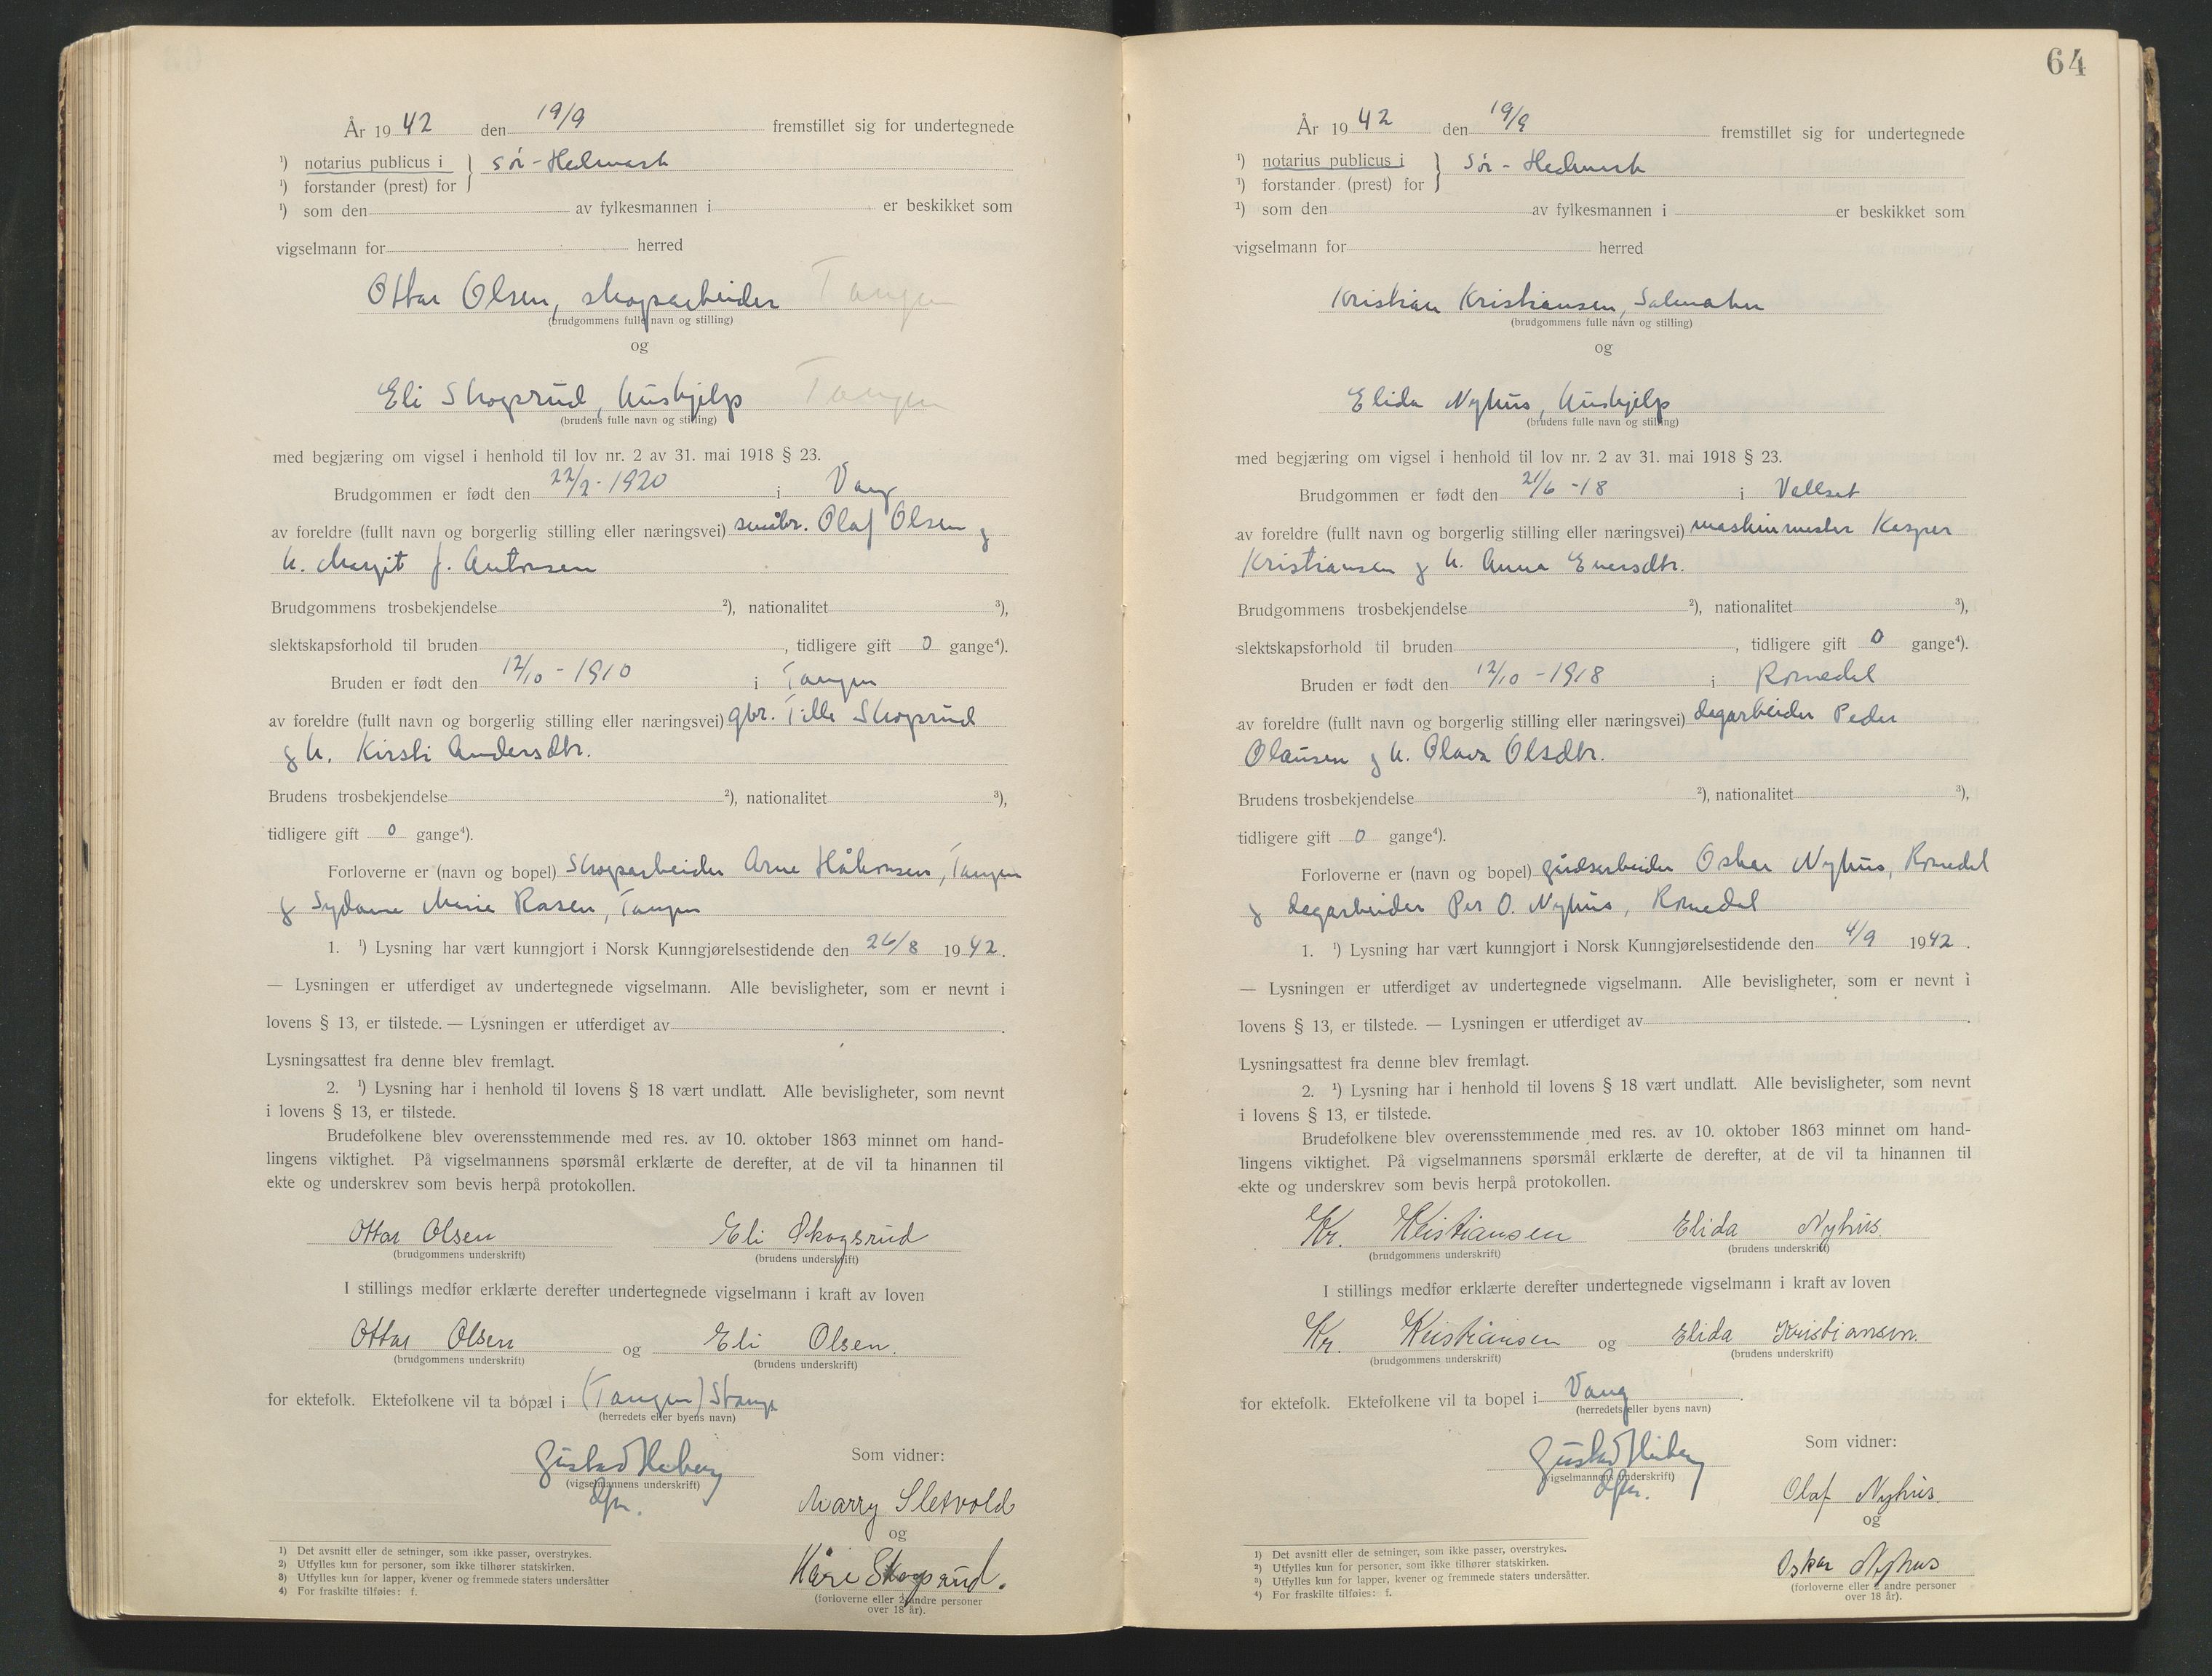 År 1942 den 19/9 fremstillet sig for undertegnede
¹) notarius publicus i } Sør-Hedmark
¹) forstander (prest) for
¹) som den av fylkesmannen i er beskikket som
vigselmann for herred
Ottar Olsen, skogsarbeider Tangen
(brudgommens fulle navn og stilling)
og
Eli Skogsrud, hushjelp Tangen
(brudens fulle navn og stilling)
med begjæring om vigsel i henhold til lov nr. 2 av 31. mai 1918 § 23.
Brudgommen er født den 22/2-1920 i Vang
av foreldre (fullt navn og borgerlig stilling eller næringsvei) småbr. Olaf Olsen og
h. Margit f. Antonsen
Brudgommens trosbekjendelse ²), nationalitet ³),
slektskapsforhold til bruden , tidligere gift 0 gange⁴).
Bruden er født den 12/10-1910 i Tangen
av foreldre (fullt navn og borgerlig stilling eller næringsvei) gbr. Tille Skogsrud
og h. Kirsti Andersdtr.
Brudens trosbekjendelse ²), nationalitet ³),
tidligere gift 0 gange⁴).
Forloverne er (navn og bopel) Skogsarbeider Arne Håkonsen, Tangen
og Marie Rasen, Tangen
1. ¹) Lysning har vært kunngjort i Norsk Kunngjørelsestidende den 26/8 1942.
— Lysningen er utferdiget av undertegnede vigselmann. Alle bevisligheter, som er nevnt i
lovens § 13, er tilstede. — Lysningen er utferdiget av .
Lysningsattest fra denne blev fremlagt.
2. ¹) Lysning har i henhold til lovens § 18 vært undlatt. Alle bevisligheter, som nevnt
i lovens § 13, er tilstede.
Brudefolkene blev overensstemmende med res. av 10. oktober 1863 minnet om hand-
lingens viktighet. På vigselmannens spørsmål erklærte de derefter, at de vil ta hinannen til
ekte og underskrev som bevis herpå protokollen.
Ottar Olsen Eli Skogsrud
(brudgommens underskrift) (brudens underskrift)
I stillings medfør erklærte derefter undertegnede vigselmann i kraft av loven
Ottar Olsen og Eli Olsen.
(brudgommens underskrift) (brudens underskrift)
for ektefolk. Ektefolkene vil ta bopæl i (Tangen) Stange
(herredets eller byens navn)
Gustav Heiberg Som vidner:
(vigselmannens underskrift)
dfm. Marry Sletvold
og
Kåre Skogsrud.
(forloverne eller 2 andre personer
over 18 år).
¹) Det avsnitt eller de setninger, som ikke passer, overstrykes.
²) Utfylles kun for personer, som ikke tilhører statskirken.
³) Utfylles kun for lapper, kvener og fremmede staters undersåtter
⁴) For fraskilte tilføies: f.
64
År 1942 den 19/9 fremstillet sig for undertegnede
¹) notarius publicus i } Sør-Hedmark
¹) forstander (prest) for
¹) som den av fylkesmannen i er beskikket som
vigselmann for herred
Kristian Kristiansen, Salmaker
(brudgommens fulle navn og stilling)
og
Elida Nyhus, hushjelp
(brudens fulle navn og stilling)
med begjæring om vigsel i henhold til lov nr. 2 av 31. mai 1918 § 23.
Brudgommen er født den 21/6-18 i Vallset
av foreldre (fullt navn og borgerlig stilling eller næringsvei) maskinmester Kasper
Kristiansen og h. Anna Enersdtr.
Brudgommens trosbekjendelse ²), nationalitet ³),
slektskapsforhold til bruden , tidligere gift 0 gange⁴).
Bruden er født den 12/10-1918 i Romedal
av foreldre (fullt navn og borgerlig stilling eller næringsvei) dagarbeider Peder
Olausen og h. Olava Olsdtr.
Brudens trosbekjendelse ²), nationalitet ³),
tidligere gift 0 gange⁴).
Forloverne er (navn og bopel) gårdsarbeider Oskar Nyhus, Romedal
og dagarbeider Per O. Nyhus, Romedal
1. ¹) Lysning har vært kunngjort i Norsk Kunngjørelsestidende den 4/9 1942.
— Lysningen er utferdiget av undertegnede vigselmann. Alle bevisligheter, som er nevnt i
lovens § 13, er tilstede. — Lysningen er utferdiget av .
Lysningsattest fra denne blev fremlagt.
2. ¹) Lysning har i henhold til lovens § 18 vært undlatt. Alle bevisligheter, som nevnt
i lovens § 13, er tilstede.
Brudefolkene blev overensstemmende med res. av 10. oktober 1863 minnet om hand-
lingens viktighet. På vigselmannens spørsmål erklærte de derefter, at de vil ta hinannen til
ekte og underskrev som bevis herpå protokollen.
Kr. Kristiansen Elida Nyhus.
(brudgommens underskrift) (brudens underskrift)
I stillings medfør erklærte derefter undertegnede vigselmann i kraft av loven
Kr. Kristiansen og Elida Kristiansen.
(brudgommens underskrift) (brudens underskrift)
for ektefolk. Ektefolkene vil ta bopel i Vang.
(herredets eller byens navn)
Gustav Heiberg Som vidner:
(vigselmannens underskrift)
dfm. Olaf Nyhus.
og
Oskar Nyhus
(forloverne eller 2 andre personer
over 18 år).
¹) Det avsnitt eller de setninger, som ikke passer, overstrykes.
²) Utfylles kun for personer, som ikke tilhører statskirken.
³) Utfylles kun for lapper, kvener og fremmede staters undersåtter.
⁴) For fraskilte tilføies: f.